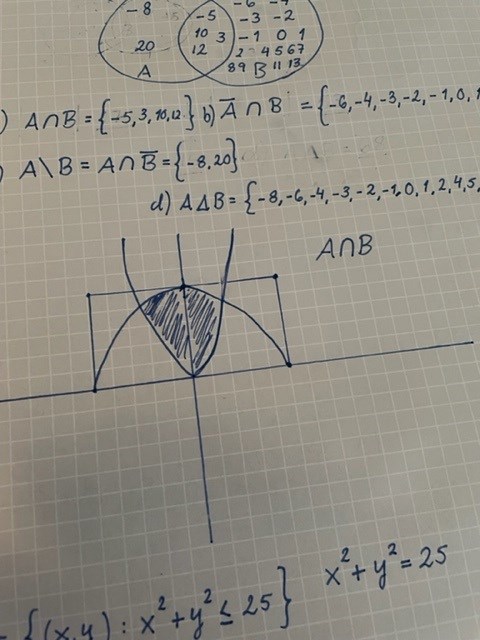 -8 -5 -3 -2
10 3 -1 0 1
20 12 2 4 5 6 7
A 8 9 B 11 13
) A∩B = {-5, 3, 10, 12.} b) A̅ ∩ B = {-6, -4, -3, -2, -1, 0, 1
) A\B = A∩B̅ = {-8, 20}
d) A△B = {-8, -6, -4, -3, -2, -1, 0, 1, 2, 4, 5,
A∩B
{(x,y) : x² + y² ≤ 25} x² + y² = 25